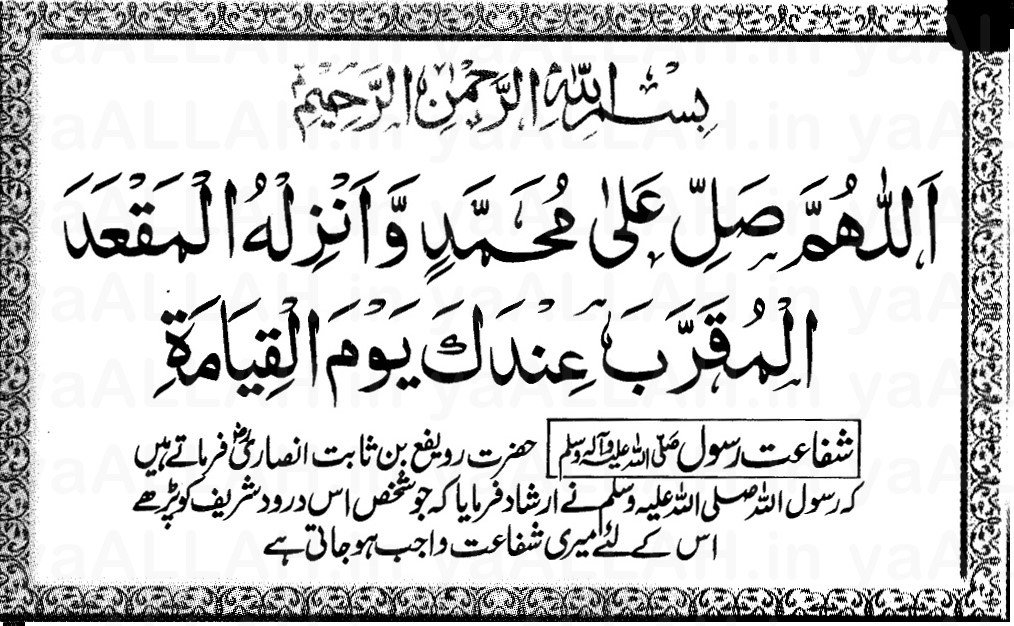 بِسْمِ اللهِ الرَّحْمٰنِ الرَّحِيْمِ
اَللّٰهُمَّ صَلِّ عَلٰى مُحَمَّدٍ وَّاَنْزِلْهُ الْمَقْعَدَ
الْمُقَرَّبَ عِنْدَكَ يَوْمَ الْقِيَامَةِ
شفاعت رسول صلی اللہ علیہ وآلہ وسلم حضرت رویفع بن ثابت انصاریؓ فرماتے ہیں
کہ رسول اللہ صلی اللہ علیہ وسلم نے ارشاد فرمایا کہ جو شخص اس درود شریف کو پڑھے
اس کے لئے میری شفاعت واجب ہو جاتی ہے
yaALLAH.in